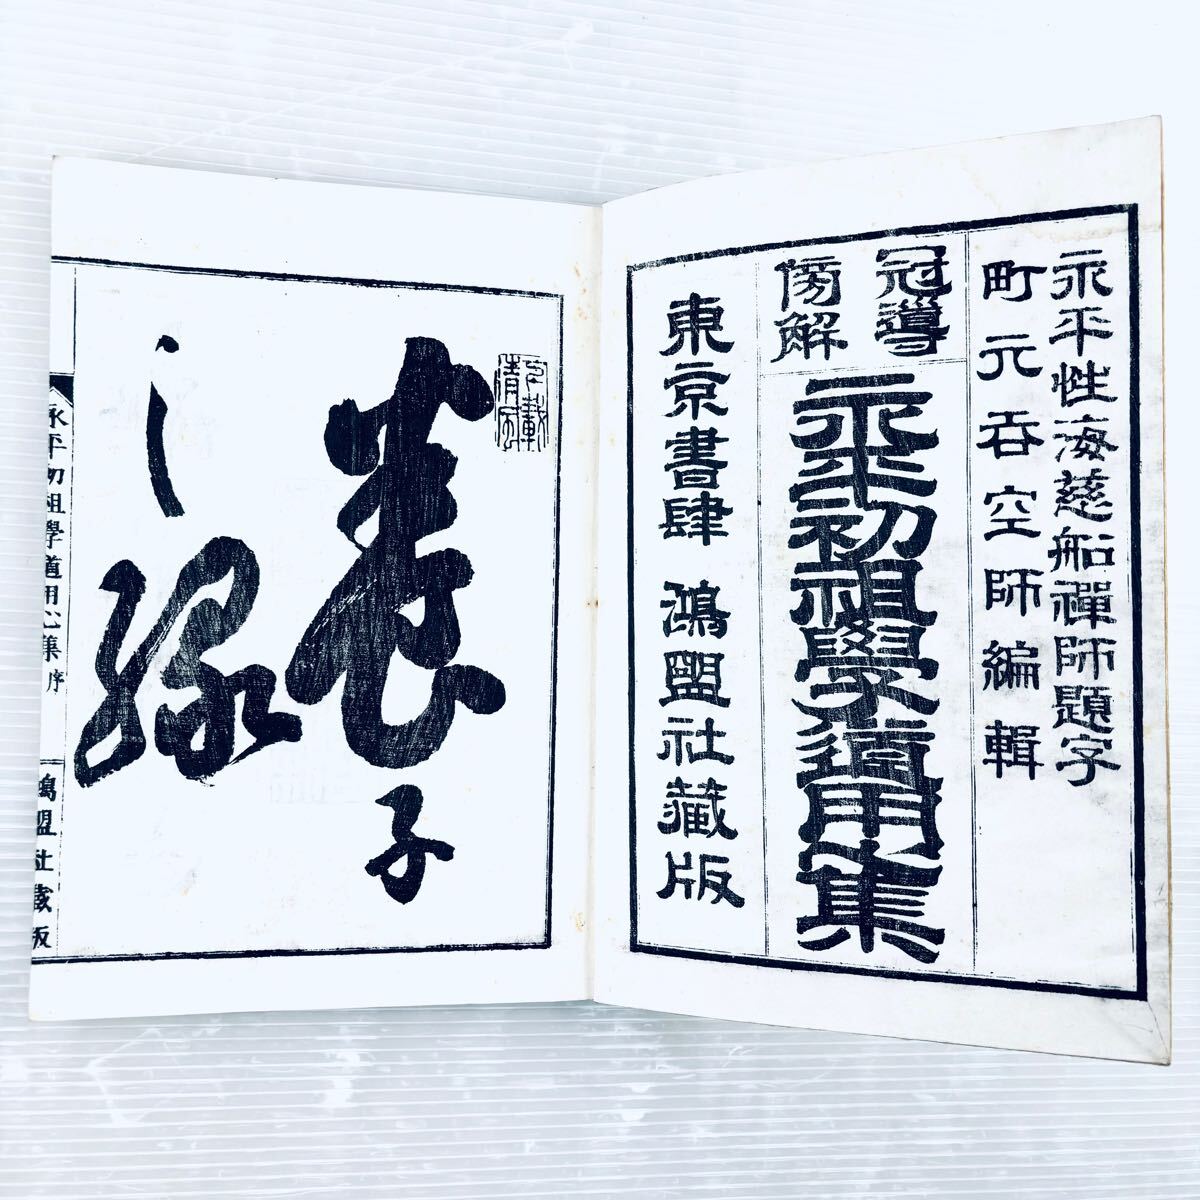 永平性海慈船禪師題字
町元呑空師編輯
冠導
傍解
永平初祖學道用心集
東京書肆 鴻盟社藏版
千載
清風
養子
之緣
永平初祖學道用心集 序 鴻盟社藏版